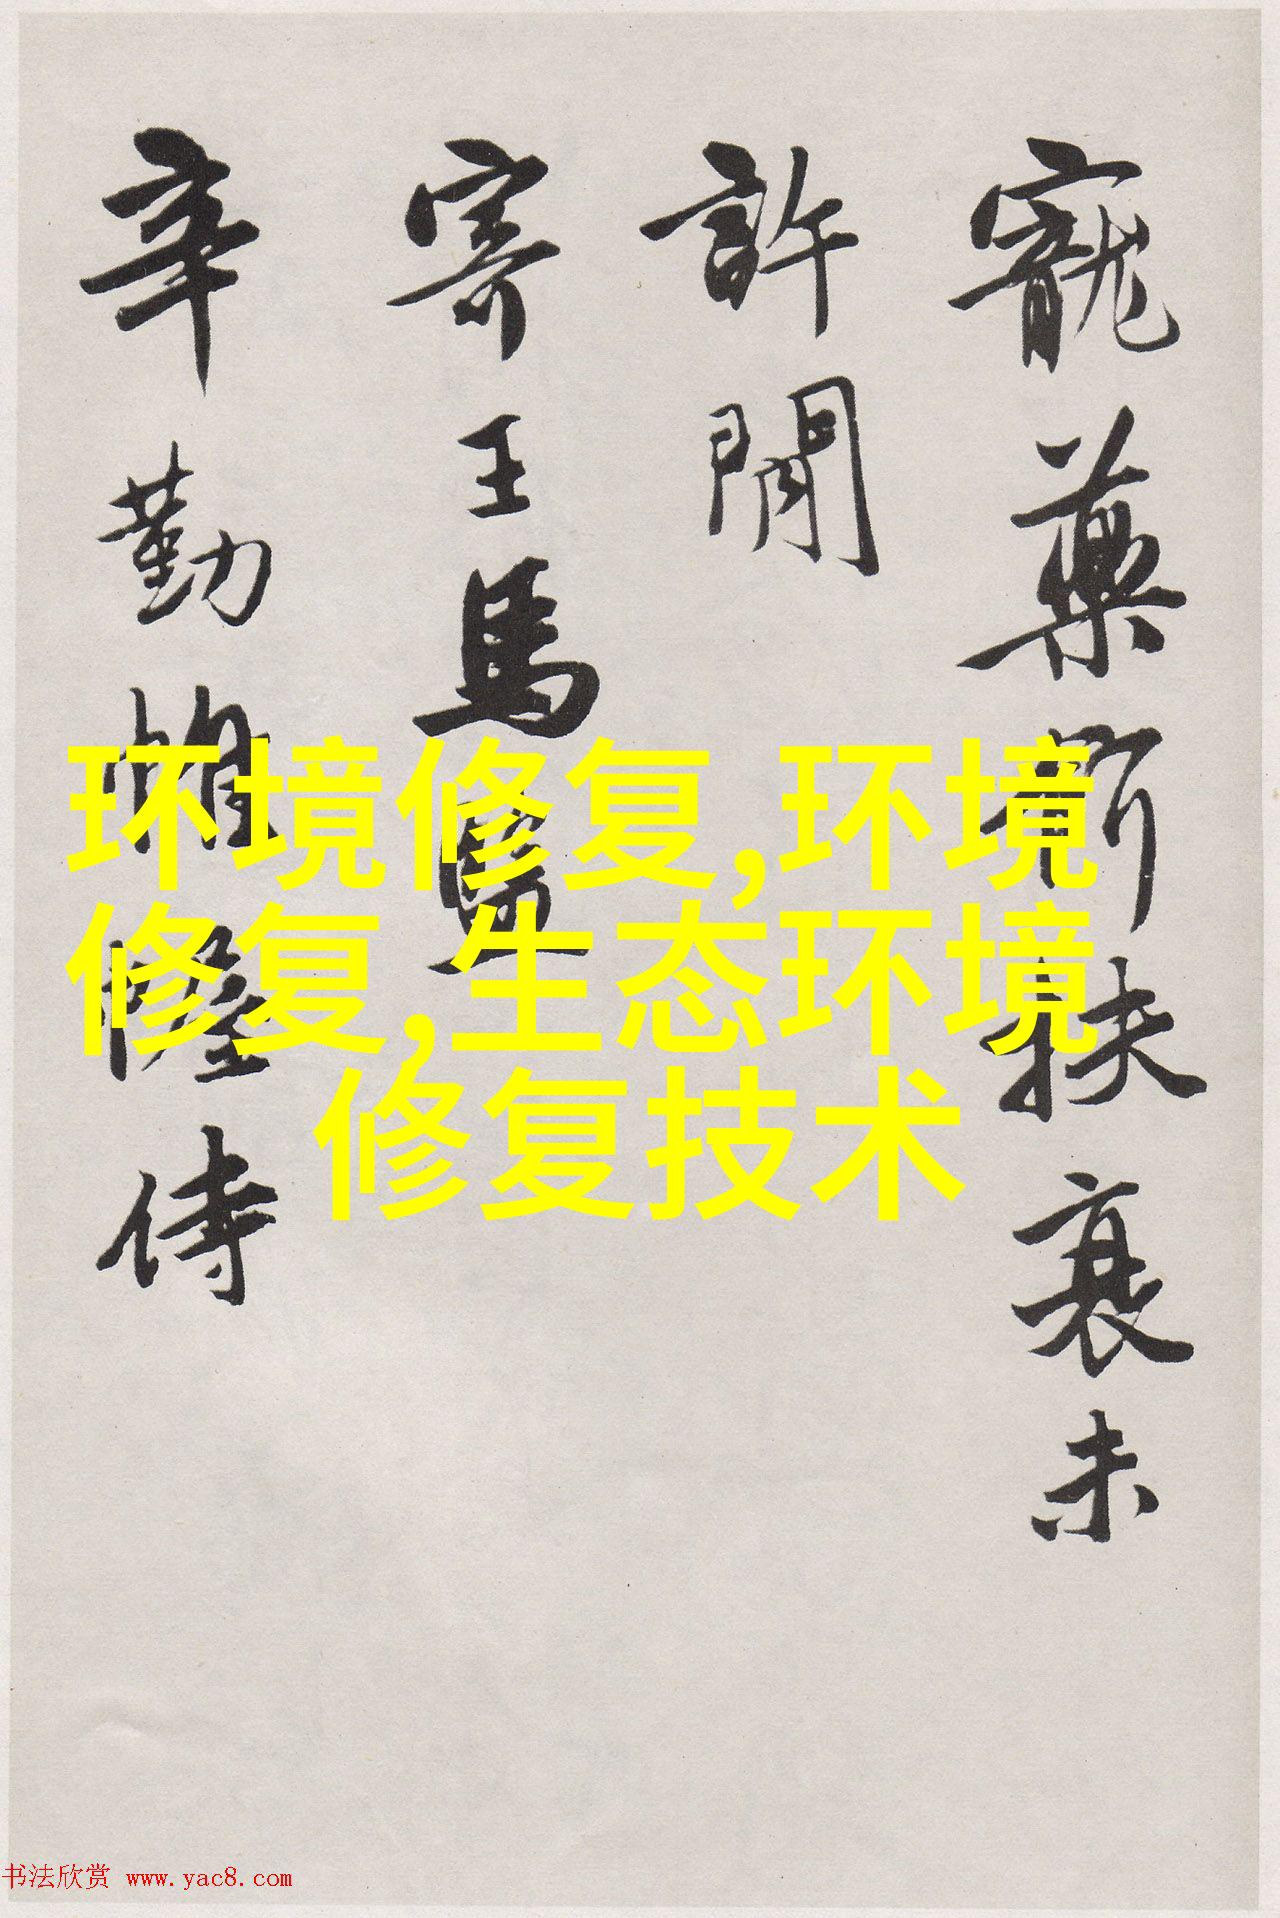 寵藥聊扶衰未
許閒
寄王馬鳧
辛勤帷幄侍
环境修复,环境
修复,生态环境
修复技术
书法欣赏 www.yac8.com